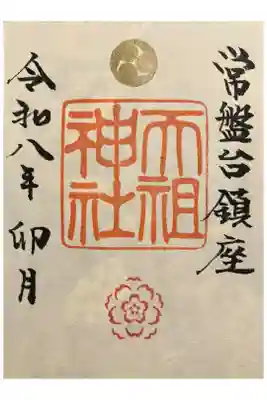 常盤台鎮座
天祖神社
令和八年 卯月